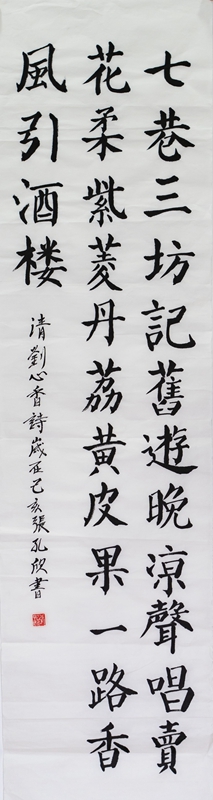 七巷三坊記舊遊晚凉聲唱賣
花柔紫菱丹荔黄皮果一路香
風引酒楼
清劉心香詩歲在己亥張孔欣書